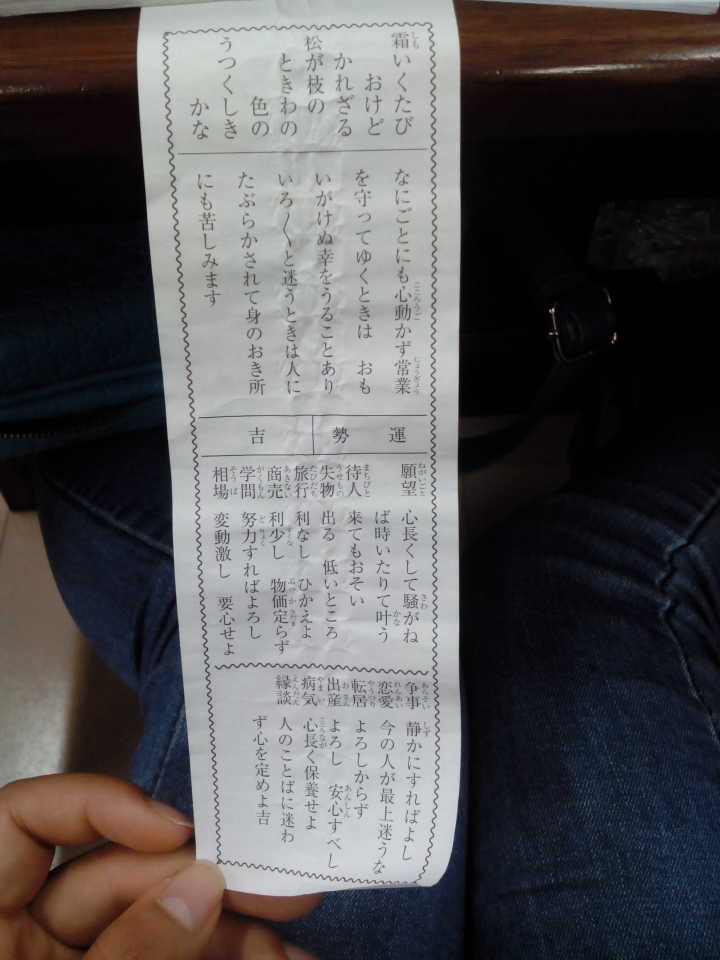 霜いくたび
おけど
かれざる
松が枝の
ときわの
色の
うつくしき
かな
なにごとにも心動かず常業
を守ってゆくときは　おも
いがけぬ幸をうることあり
いろ〳〵と迷うときは人に
たぶらかされて身のおき所
にも苦しみます
運勢　吉
願望　心長くして騒がね
ば時いたりて叶う
待人　来てもおそい
失物　出る　低いところ
旅行　利なし　ひかえよ
商売　利少し　物価定らず
学問　努力すればよろし
相場　変動激し　要心せよ
争事　静かにすればよし
恋愛　今の人が最上迷うな
転居　よろしからず
出産　よろし　安心すべし
病気　心長く保養せよ
縁談　人のことばに迷わ
ず心を定めよ吉